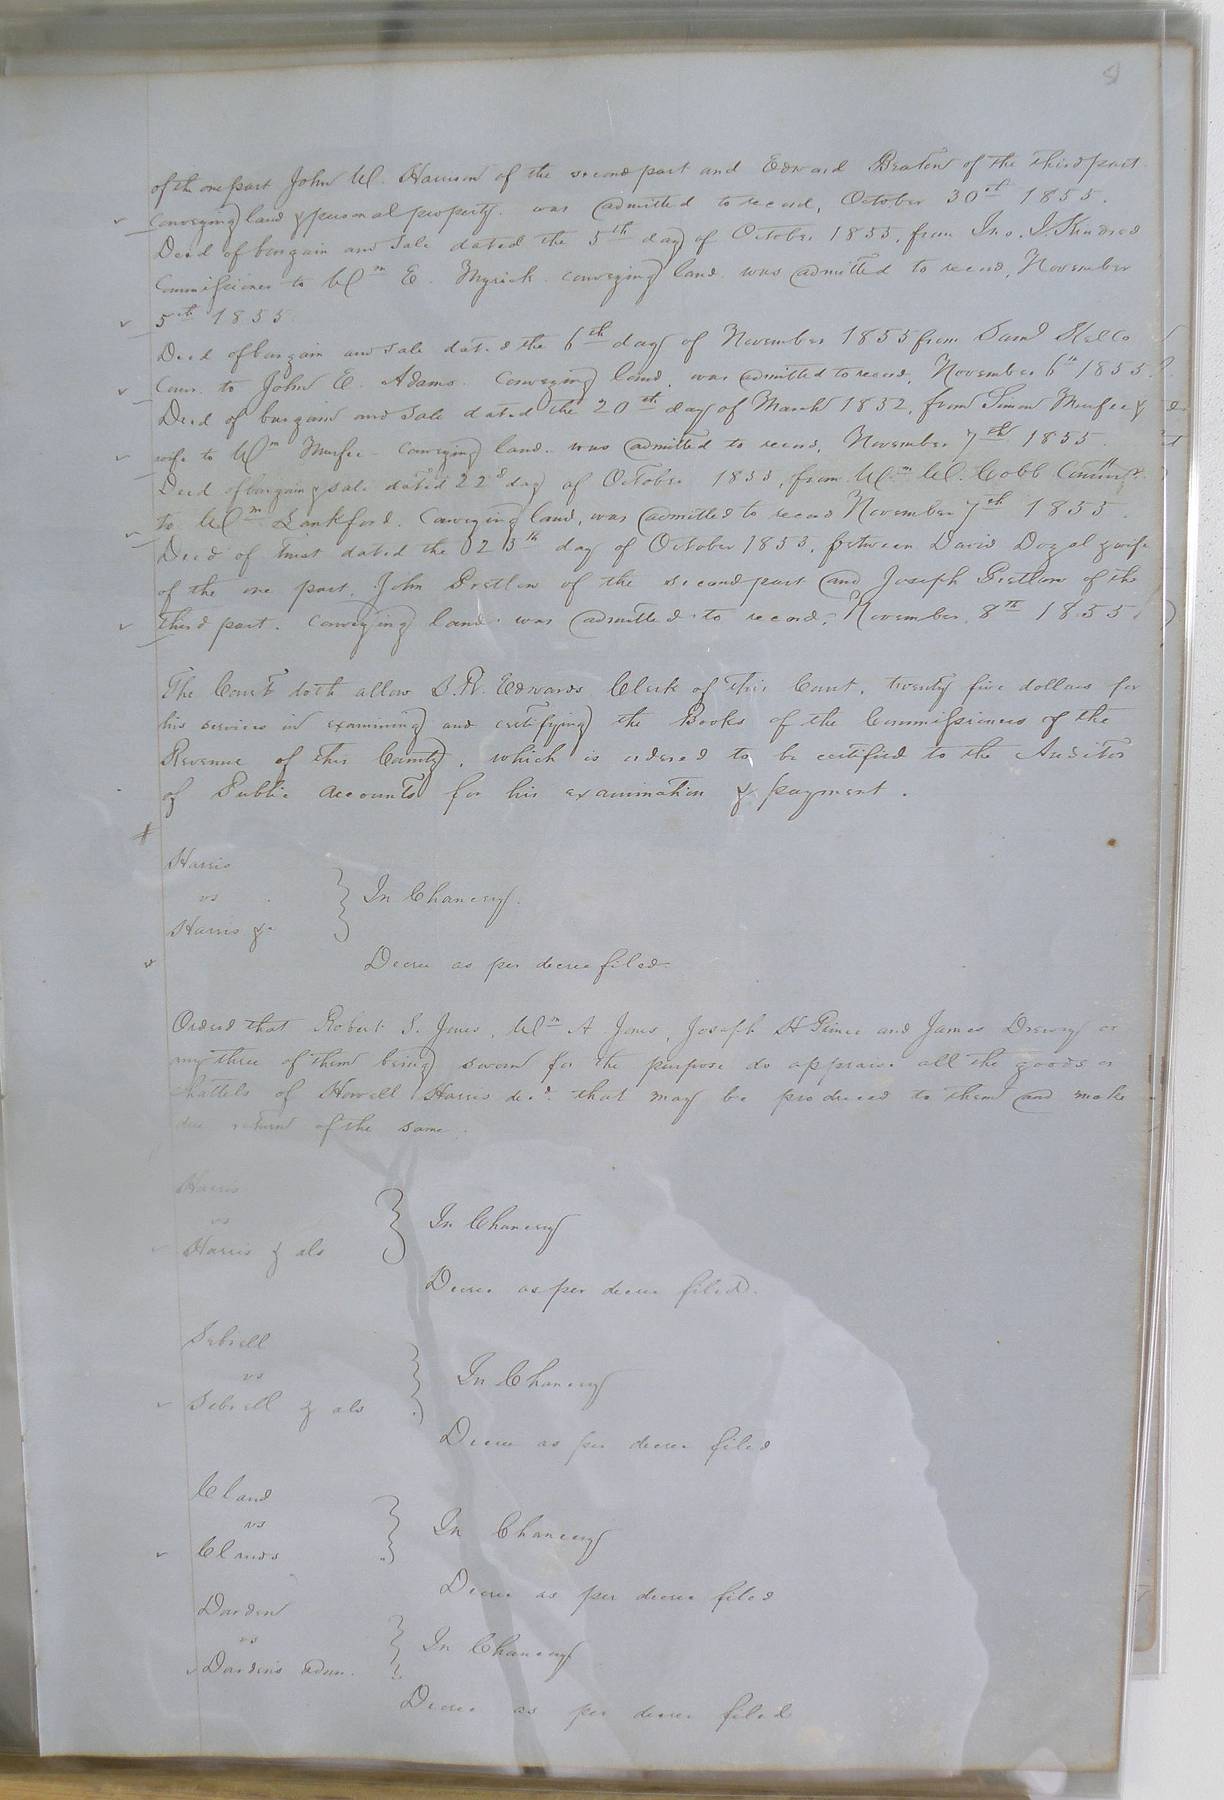 of th one part John W. Harrison of the second part and Edward Beaton of the third part
conveying land & personal property. was admitted to record, October 30th 1855.
Deed of bargain and sale dated the 5th day of October 1855, from Jno. J. Kindred
Commissioner to Wm E. Myrick conveying land was admitted to record, November
5th 1855
Deed of bargain and sale dated the 6th day of November 1855 from Saml
Comr. to John E. Adams. Conveying land, was admitted to record, November 6th 1855.
Deed of bargain and sale dated the 20th day of March 1832, from Simon Murfee &
wife to Wm Murfee conveying land. was admitted to record, November 7th 1855.
Deed of bargain & sale dated 22d day of October 1855, from Wm W. Cobb
to Wm Lankford. Conveying land, was admitted to record November 7th 1855.
Deed of trust dated the 25th day of October 1855, between David Doyal & wife
of the one part, John Pretlow of the second part and Joseph Pretlow of the
third part. conveying land. was admitted to record, November, 8th 1855.
The Court doth allow L. R. Edwards Clerk of this Court, twenty five dollars for
his services in examining and certifying the Books of the Commissioners of the
Revenue of this County, which is ordered to be certified to the Auditor
of Public Accounts for his examination & payment.
Harris
vs
Harris &c
In Chancery.
Decree as per decree filed.
Ordered that Robert S. Jones, Wm A Jones, Joseph H Prince and James Drewry or
any three of them being sworn for the purpose do appraise all the goods or
chattels of Howell Harris decd. that may be produced to them and make
due return of the same.
Harris
vs
Harris & als
In Chancery
Decree as per decree filed.
Sebrell
vs
Sebrell & als
In Chancery
Decree as per decree filed
Claud
vs
Clauds
In Chancery
Decree as per decree filed
Darden
vs
Darden's Admr.
In Chancery
Decree as per decree filed